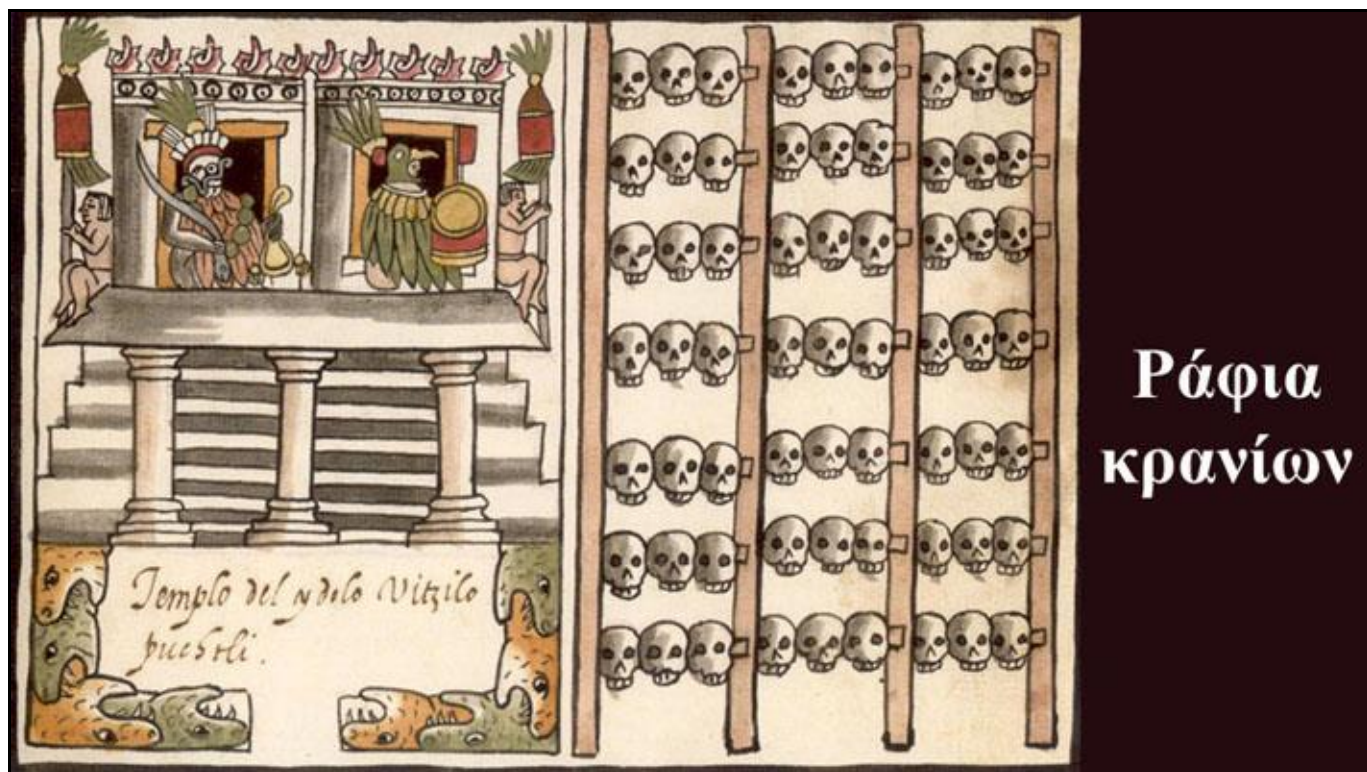 Templo del ydolo Vitzilo
puchtli.
Ράφια
κρανίων